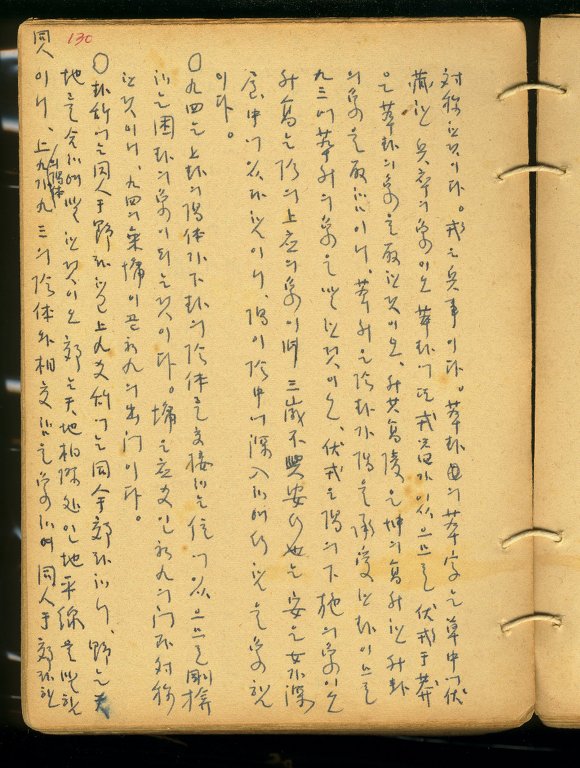 130
対称한것이다。戎은兵事이다。萃卦의萃字은草中에伏
藏한兵卒의象이오萃卦에도戎器가있으므로伏戎于莽
은萃卦의象을取한것이오、升其高陵은坤의高升한升卦
의象을取함이니、萃升은陰卦가陽을承受한卦이므로
九三에萃升의象을한것이오、伏戎은陽의下施의象이오
升高는陰의上应의象이며三歳不興安行也는安은女가深
室中에있다함이니、陽이陰中에深入하여行함을象함
이다。
○九四는上卦의陽体가下卦의陰体를交接하는位에있으므로剛揜
하는困卦의象이되는것이다。墉은应爻인初九의门과対称
한것이니、九四의乘墉이곧初九의出门이다。
○卦辞에는同人于野라하고上九爻辞에는同人于郊라하니、野는天
地를合하여한것이오郊는天地相際処인地平線을함
同人이니、上九의陽体가九三의陰体와相交하는象이며同人于郊라함